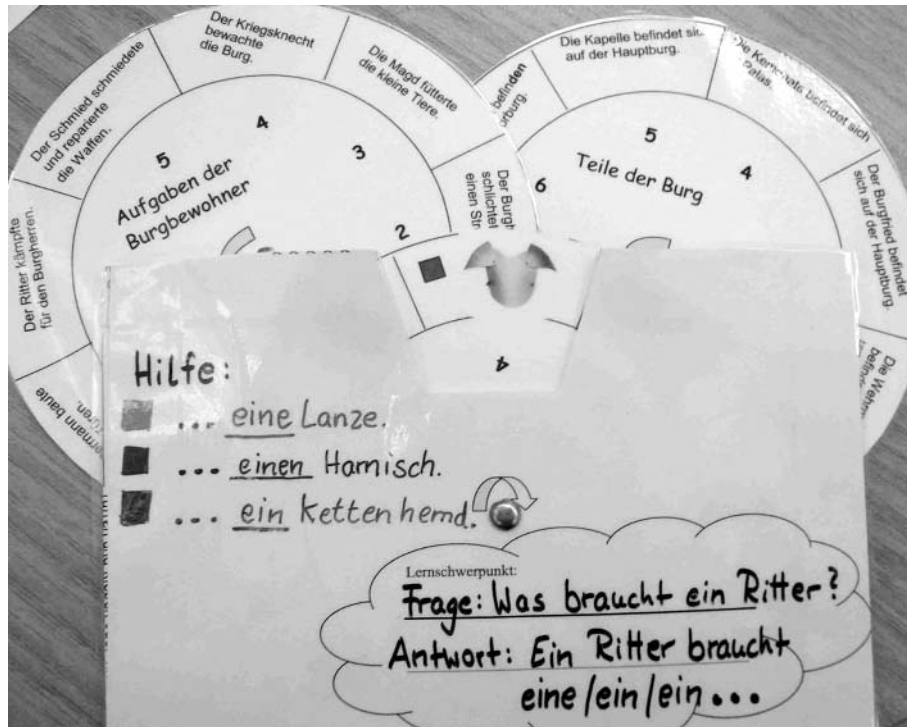 Der Ritter kämpfte
für den Burgherren.
Der Schmied schmiedete
und reparierte
die Waffen.
Der Kriegsknecht
bewachte
die Burg.
Die Magd fütterte
die kleine Tiere.
einen
5
4
3
2
Aufgaben der
Burgbewohner
befinden
Die Kapelle befindet
auf der Hauptburg.
befindet sich
Der Burgfried befindet
sich auf der Hauptburg.
Die
6
5
4
Teile der Burg
4
Hilfe:
... eine Lanze.
... einen Harnisch.
... ein Kettenhemd.
Lernschwerpunkt:
Frage: Was braucht ein Ritter?
Antwort: Ein Ritter braucht
eine/ein/ein...